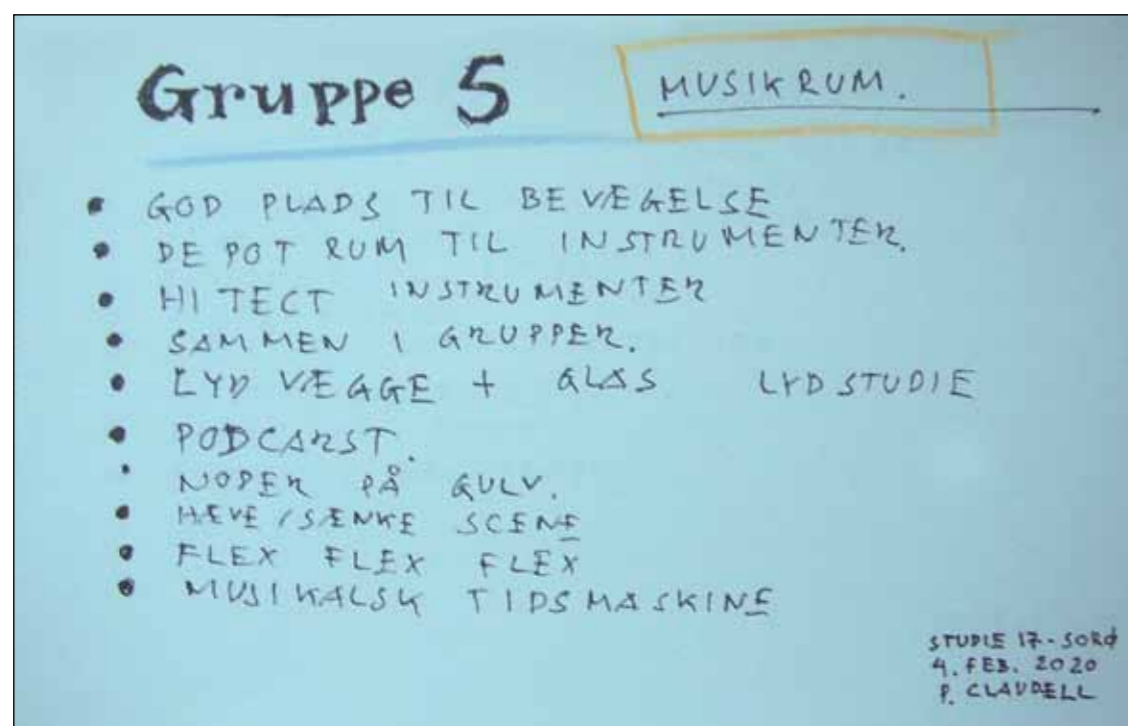 Gruppe 5
MUSIKRUM.
• GOD PLADS TIL BEVÆGELSE
• DEPOT RUM TIL INSTRUMENTER.
• HITECT INSTRUMENTER
• SAMMEN I GRUPPER.
• LYD VÆGGE + GLAS LYDSTUDIE
• PODCARST.
• NOPER PÅ GULV.
• HÆVE/SÆNKE SCENE
• FLEX FLEX FLEX
• MUSIKALSK TIDSMASKINE
STUDIE 17-SORØ
4. FEB. 2020
P. CLAUDELL